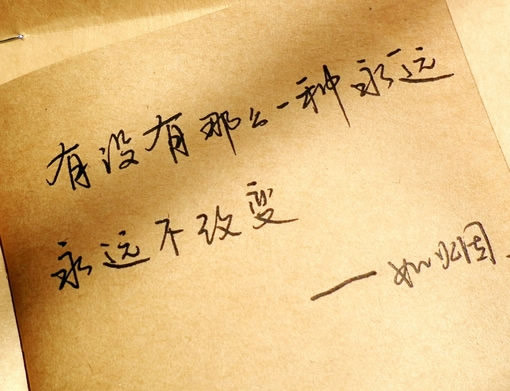 有没有那么一种永远
永远不改变
—如果